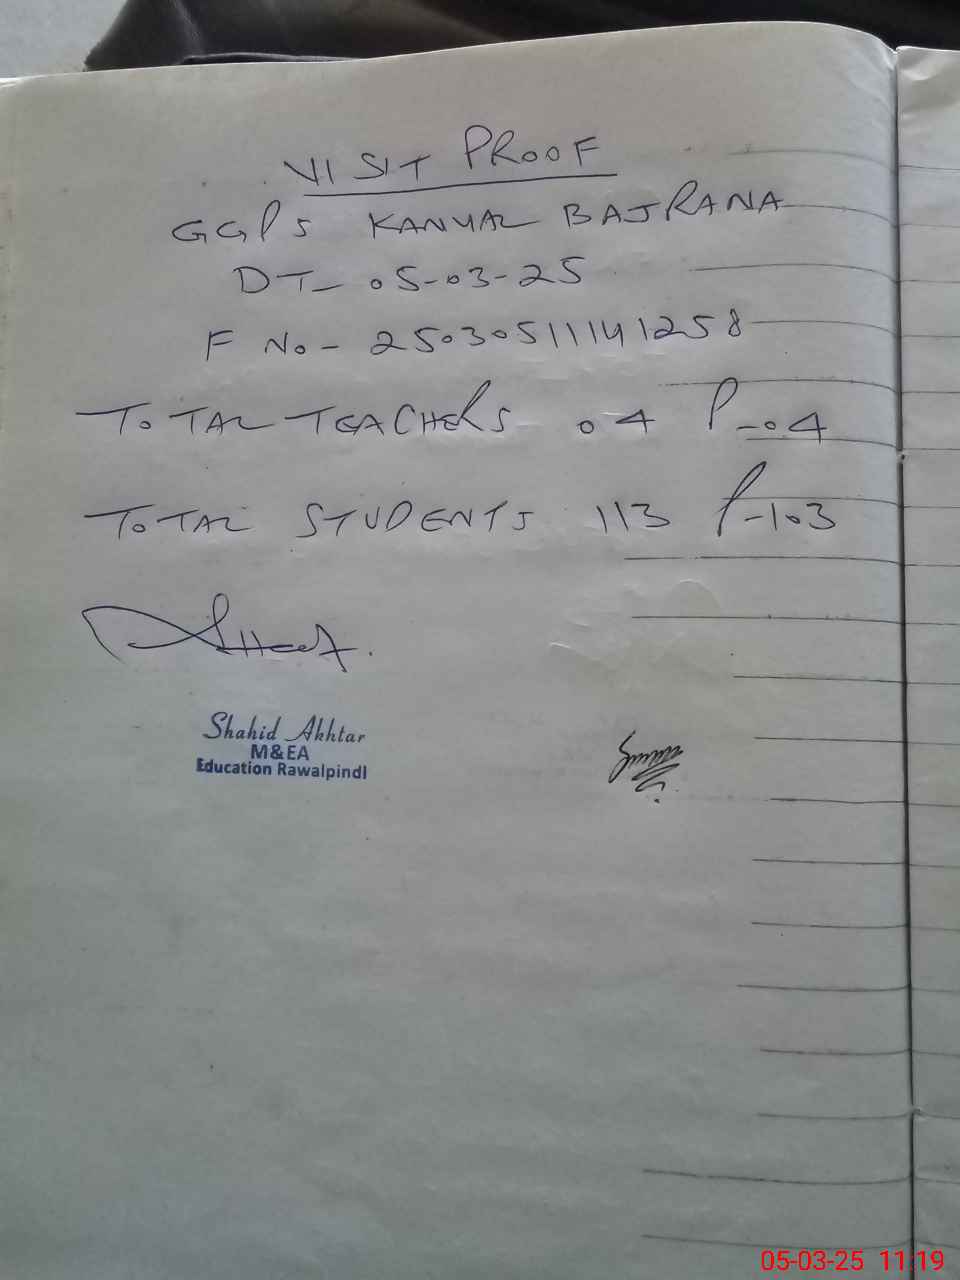 VISIT PROOF
GGPS KANYAL BAJRANA
DT- 05-03-25
F NO- 25030511141258
TOTAL TEACHERS 04 P-04
TOTAL STUDENTS 113 P-103
Shahid Akhtar
M&EA
Education Rawalpindi
05-03-25 11:19